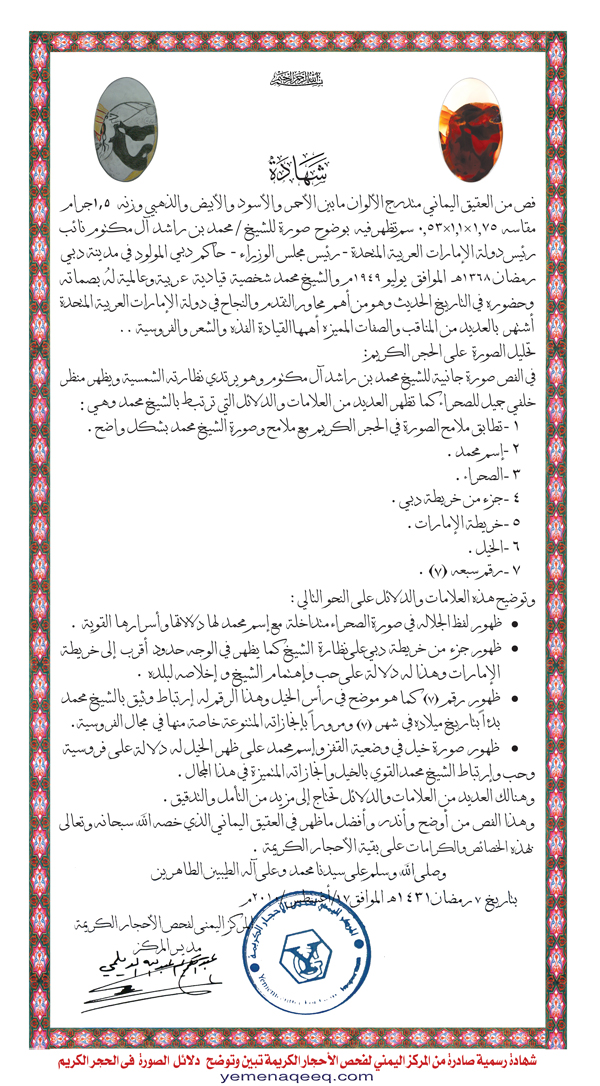 بسم الله الرحمن الرحيم
شهادة
فص من العقيق اليماني متدرج الألوان مابين الأحمر والأسود والأبيض والذهبي وزنه ١,٥ جرام
مقاسه ١,٧٥×١,١×٠,٥٣ سم تظهر فيه بوضوح صورة للشيخ / محمد بن راشد آل مكتوم نائب
رئيس دولة الإمارات العربية المتحدة - رئيس مجلس الوزراء - حاكم دبي المولود في مدينة دبي
رمضان ١٣٦٨هـ الموافق يوليو ١٩٤٩م والشيخ محمد شخصية قيادية عربية وعالمية لهُ بصماته
وحضوره في التاريخ الحديث وهو من أهم محاور التقدم والنجاح في دولة الإمارات العربية المتحدة
أشتهر بالعديد من المناقب والصفات المميزه أهمها القيادة الفذه والشعر والفروسية . .
تحليل الصورة على الحجر الكريم:
في الفص صورة جانبية للشيخ محمد بن راشد آل مكتوم وهو يرتدي نظارته الشمسية ويظهر منظر
خلفي جميل للصحراء كما تظهر العديد من العلامات والدلائل التي ترتبط بالشيخ محمد وهي :
١ - تطابق ملامح الصورة في الحجر الكريم مع ملامح وصورة الشيخ محمد بشكل واضح .
٢ - إسم محمد .
٣ - الصحراء .
٤ - جزء من خريطة دبي .
٥ - خريطة الإمارات .
٦ - الخيل .
٧ - رقم سبعه (٧) .
وتوضيح هذه العلامات والدلائل على النحو التالي :
• ظهور لفظ الجلاله في صورة الصحراء متداخلة مع إسم محمد لها دلالاتها وأسرارها القوية .
• ظهور جزء من خريطة دبي على نظارة الشيخ كما يظهر في الوجه حدود أقرب إلى خريطة
الإمارات وهذا له دلالة على حب وإهتمام الشيخ و إخلاصه لبلده .
• ظهور رقم (٧) كما هو موضح في رأس الخيل وهذا الرقم له إرتباط وثيق بالشيخ محمد
بدءاً بتاريخ ميلاده في شهر (٧) ومروراً بإنجازاته المتنوعة خاصة منها في مجال الفروسية .
• ظهور صورة خيل في وضعية القفز وإسم محمد على ظهر الخيل له دلالة على فروسية
وحب وإرتباط الشيخ محمد القوي بالخيل وانجازاته المتميزة في هذا المجال .
وهنالك العديد من العلامات والدلائل تحتاج إلى مزيد من التأمل والتدقيق .
وهذا الفص من أوضح وأندر وأفضل ماظهر في العقيق اليماني الذي خصه الله سبحانه وتعالى
بهذه الخصائص والكرامات على بقية الأحجار الكريمة .
وصلى الله وسلم على سيدنا محمد وعلى آله الطيبين الطاهرين
بتاريخ ٧ رمضان ١٤٣١هـ الموافق ١٧/أغسطس/٢٠١٠م
المركز اليمني لفحص الأحجار الكريمة
مدير المركز
المركز اليمني لفحص الأحجار الكريمة
شهادة رسمية صادرة من المركز اليمني لفحص الأحجار الكريمة تبين وتوضح دلائل الصورة في الحجر الكريم
yemenaqeeq.com